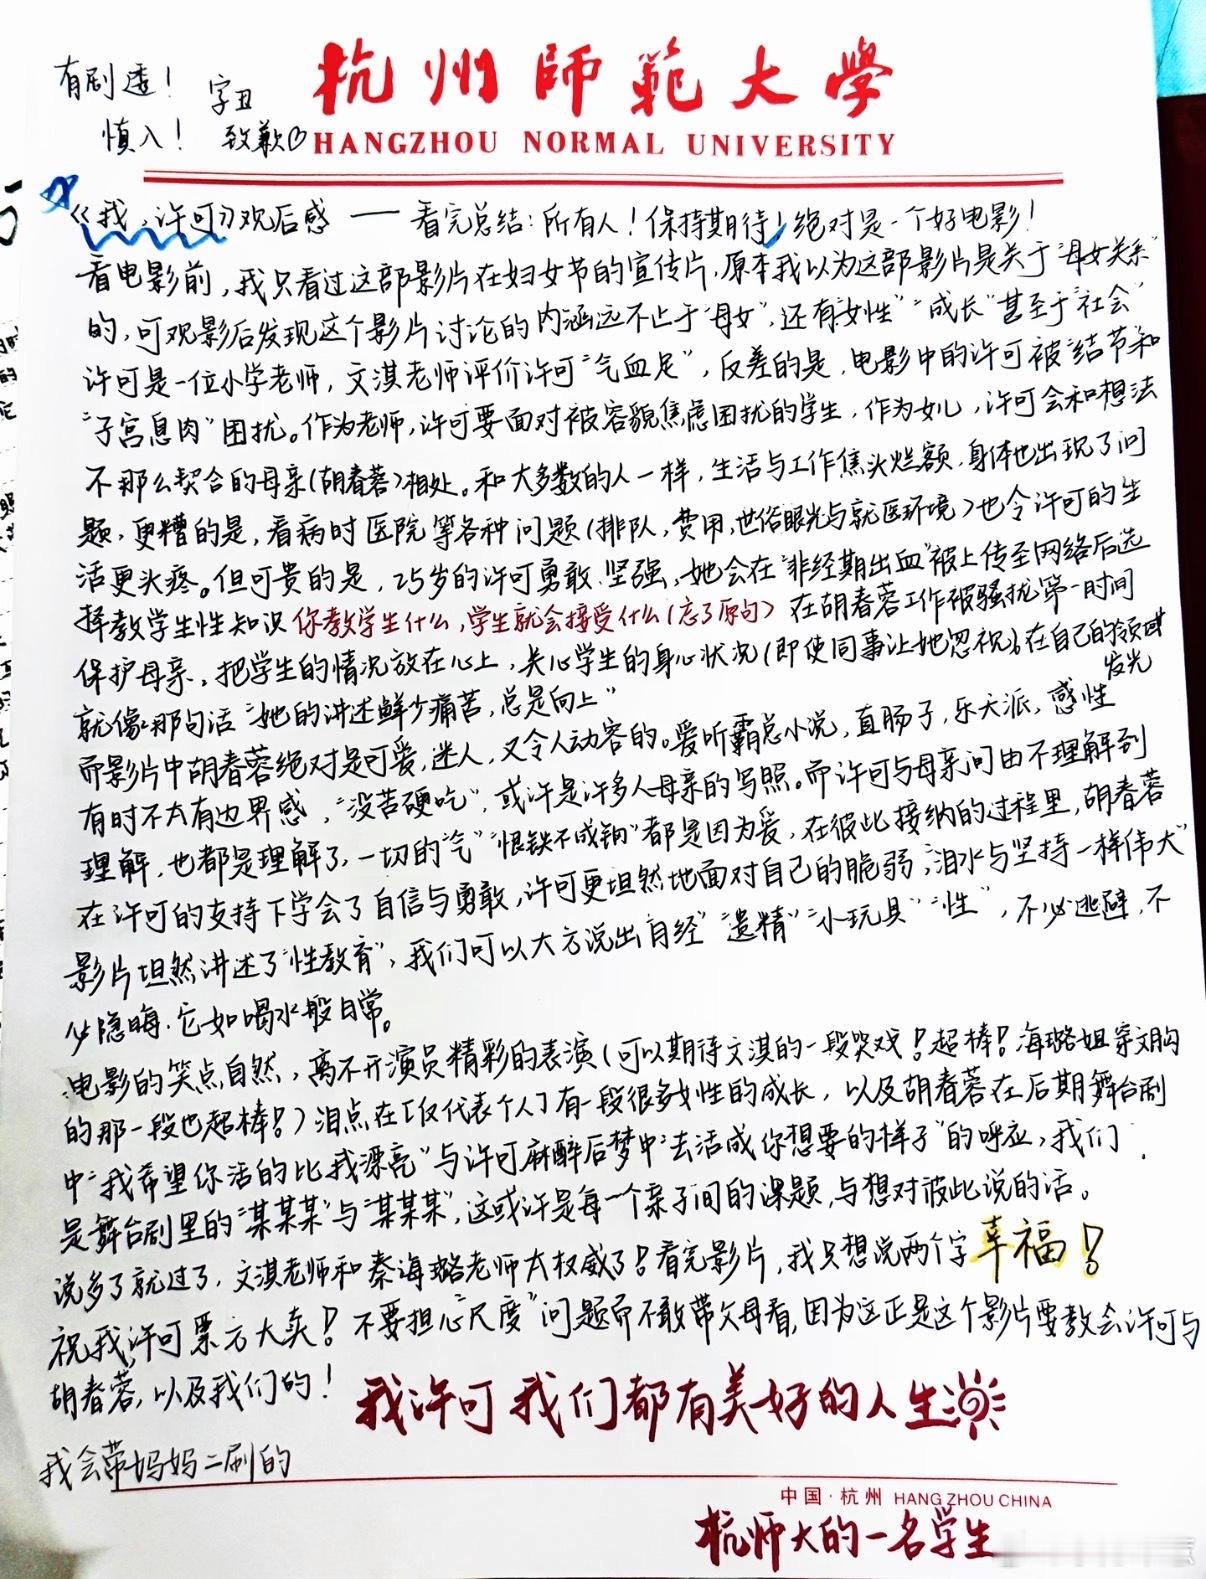 有剧透！ 字丑
慎入！ 致歉
杭州師範大學
HANGZHOU NORMAL UNIVERSITY
《我，许可》观后感 — 看完总结：所有人！保持期待！绝对是一个好电影！
看电影前，我只看过这部影片在妇女节的宣传片，原本我以为这部影片是关于"母女关系"
的，可观影后发现这个影片讨论的内涵远不止于"母女"，还有"女性""成长"甚至于"社会"
许可是一位小学老师，文淇老师评价许可"气血足"，反差的是，电影中的许可被"结节"和
"子宫息肉"困扰。作为老师，许可要面对被容貌焦虑困扰的学生，作为女儿，许可会和想法
不那么契合的母亲（胡春蓉）相处。和大多数的人一样，生活与工作焦头烂额，身体也出现了问
题，更糟的是，看病时医院等各种问题（排队，费用，世俗眼光与就医环境）也令许可的生
活更头疼。但可贵的是，25岁的许可勇敢、坚强，她会在"非经期出血"被上传至网络后选
择教学生性知识 你教学生什么，学生就会接受什么（忘了原句） 在胡春蓉工作被骚扰第一时间
保护母亲，把学生的情况放在心上，关心学生的身心状况（即使同事让她忽视），在自己的领域
发光
就像那句话"她的讲述鲜少痛苦，总是向上"
而影片中胡春蓉绝对是可爱，迷人，又令人动容的。爱听霸总小说，直肠子，乐天派，感性
有时不太有边界感，"没苦硬吃"，或许是许多人母亲的写照。而许可与母亲间由不理解到
理解，也都是理解了，一切的"气""恨铁不成钢"都是因为爱，在彼此接纳的过程里，胡春蓉
在许可的支持下学会了自信与勇敢，许可更坦然地面对自己的脆弱；"泪水与坚持一样伟大"
影片坦然讲述了"性教育"，我们可以大方说出月经""遗精""小玩具""性"，不必逃避，不
必隐晦，它如喝水般日常。
电影的笑点自然，离不开演员精彩的表演（可以期待文淇的一段哭戏！超棒！海璐姐穿文胸
的那一段也超棒！）泪点在［仅代表个人］有一段很多女性的成长，以及胡春蓉在后期舞台剧
中"我希望你活的比我漂亮"与许可麻醉后梦中"去活成你想要的样子"的呼应，我们
是舞台剧里的"某某某"与"某某某"，这或许是每一个亲子间的课题，与想对彼此说的话。
说多了就过了，文淇老师和秦海璐老师太权威了！看完影片，我只想说两个字 幸福！
祝我，许可票房大卖！不要担心"尺度"问题而不敢带父母看，因为这正是这个影片要教会许可与
胡春蓉，以及我们的！
我许可 我们都有美好的人生
我会带妈妈二刷的
中国·杭州 HANG ZHOU CHINA
杭师大的一名学生